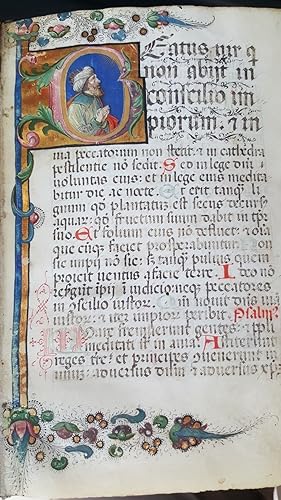 Beatus vir q
non abijt in
conscilio im
piorum: et in
via peccatorum non stetit: et in cathedra
pestilentie nō sedit. Sed in lege dñi
voluntas eius: et in lege eius medita
bitur die ac nocte. Et erit tanqȝ li
gnum qd plantatuȝ est secus decurs⁹
aquar: qd fructum suum dabit in tp̄r
suo. Et folium eius nō defluet: et o
que cuqȝ faciet prosperabuntur. Non
sic impij nō sic: sed tanqȝ puluis quem
proicit ventus a facie terre. Ideo nō
resurgūt ipij ī iudicio: neqȝ peccatores
in ɔsilio iustor. Qm̄ nouit dns
iustor: et iter impior peribit. Psalm⁹
Quare fremuerunt gentes: et ppli
meditati sūt inania. Astiterunt
reges tre: et principes ɔuenerunt in
unuȝ: aduersus dūm et aduersus xp̄m